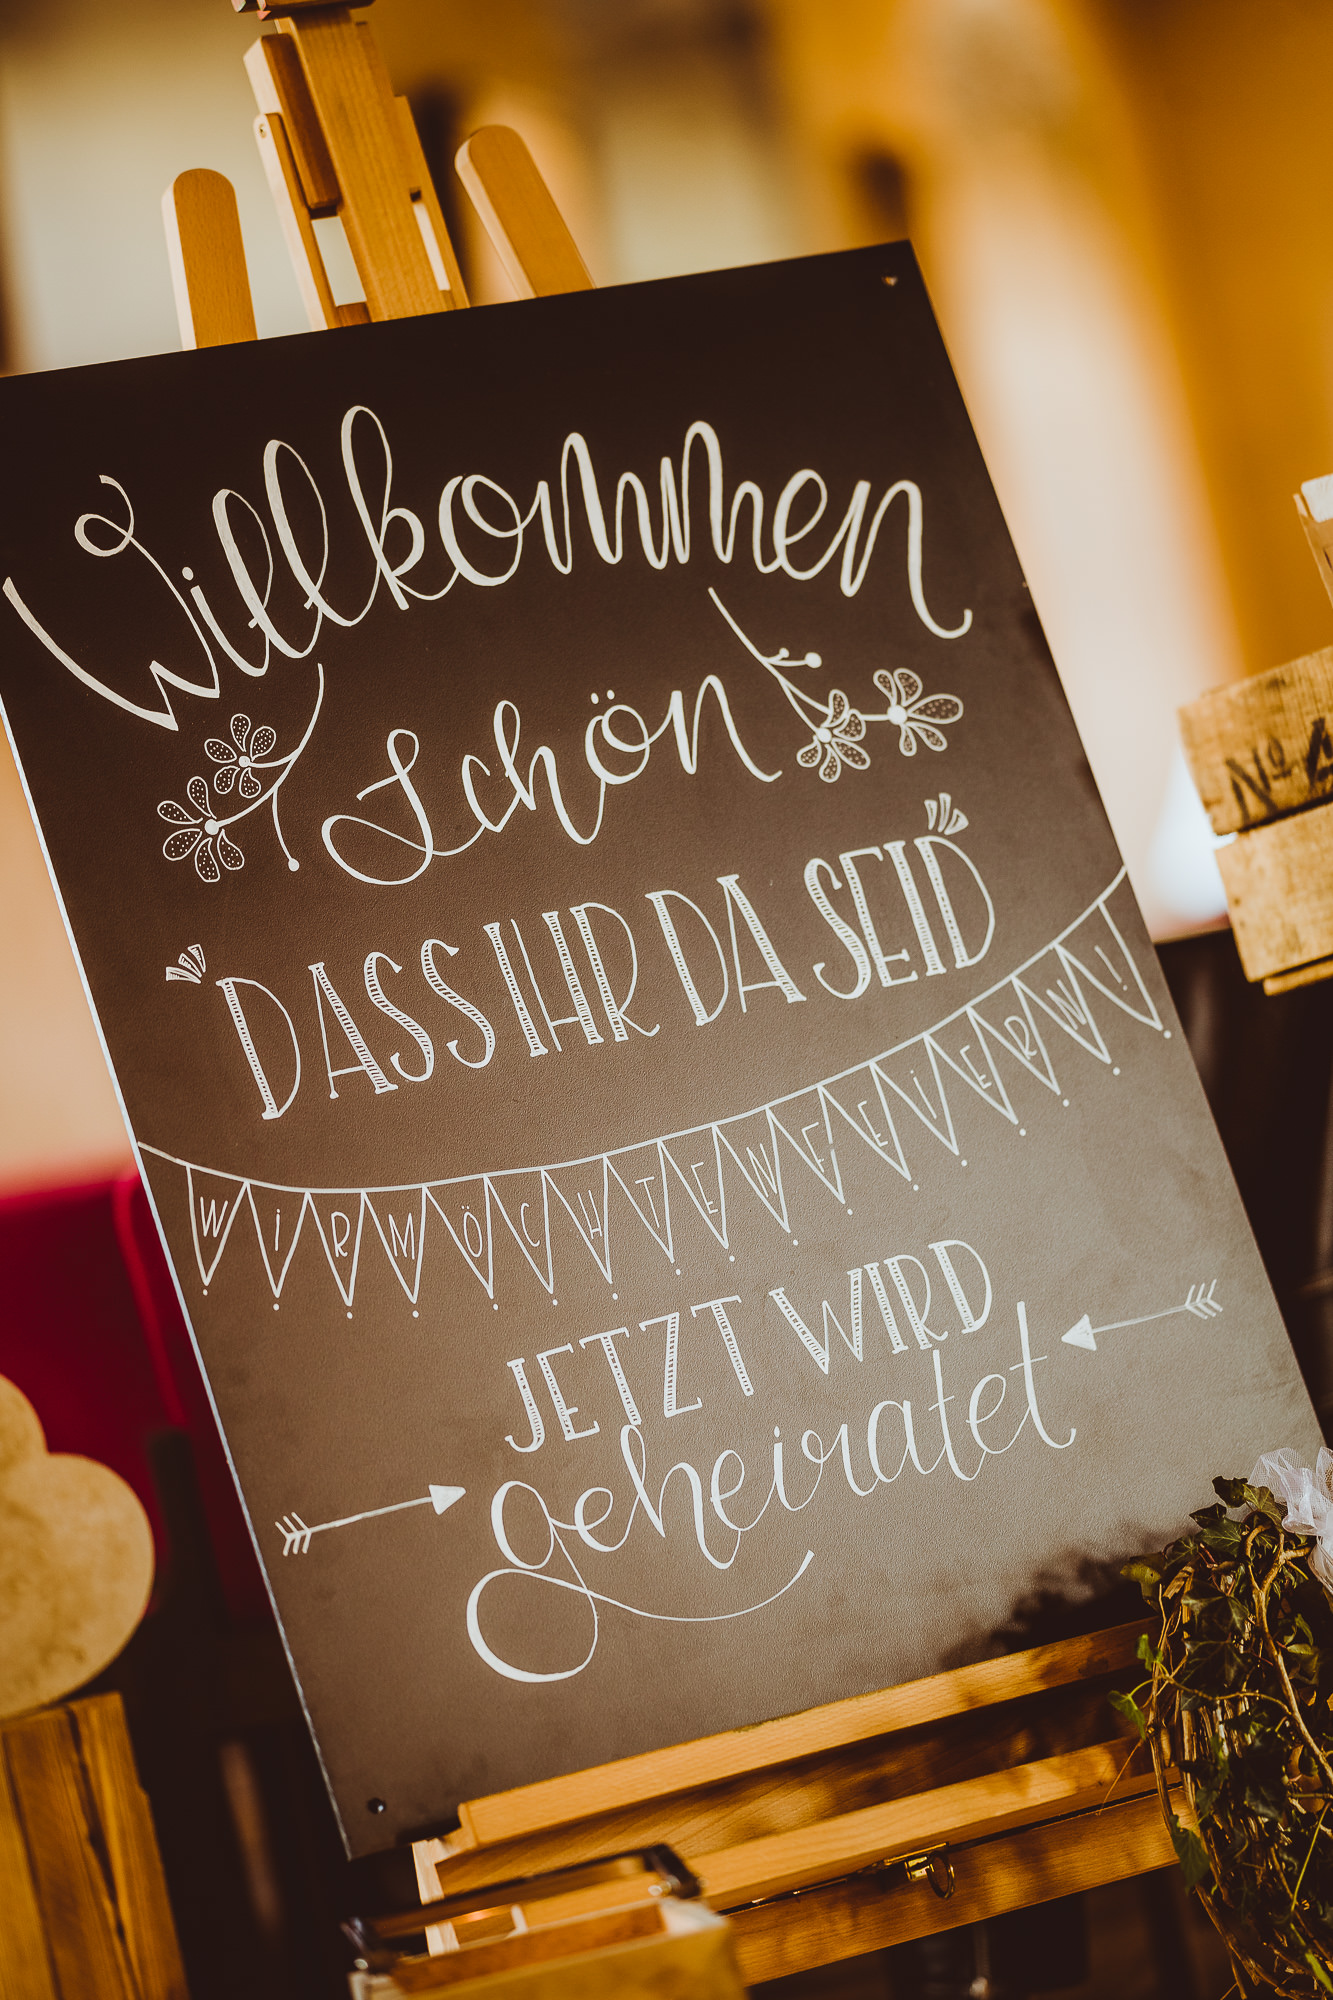 Willkommen
Schön
DASS IHR DA SEID
WIR MÖCHTEN FEIERN!
JETZT WIRD
geheiratet
No